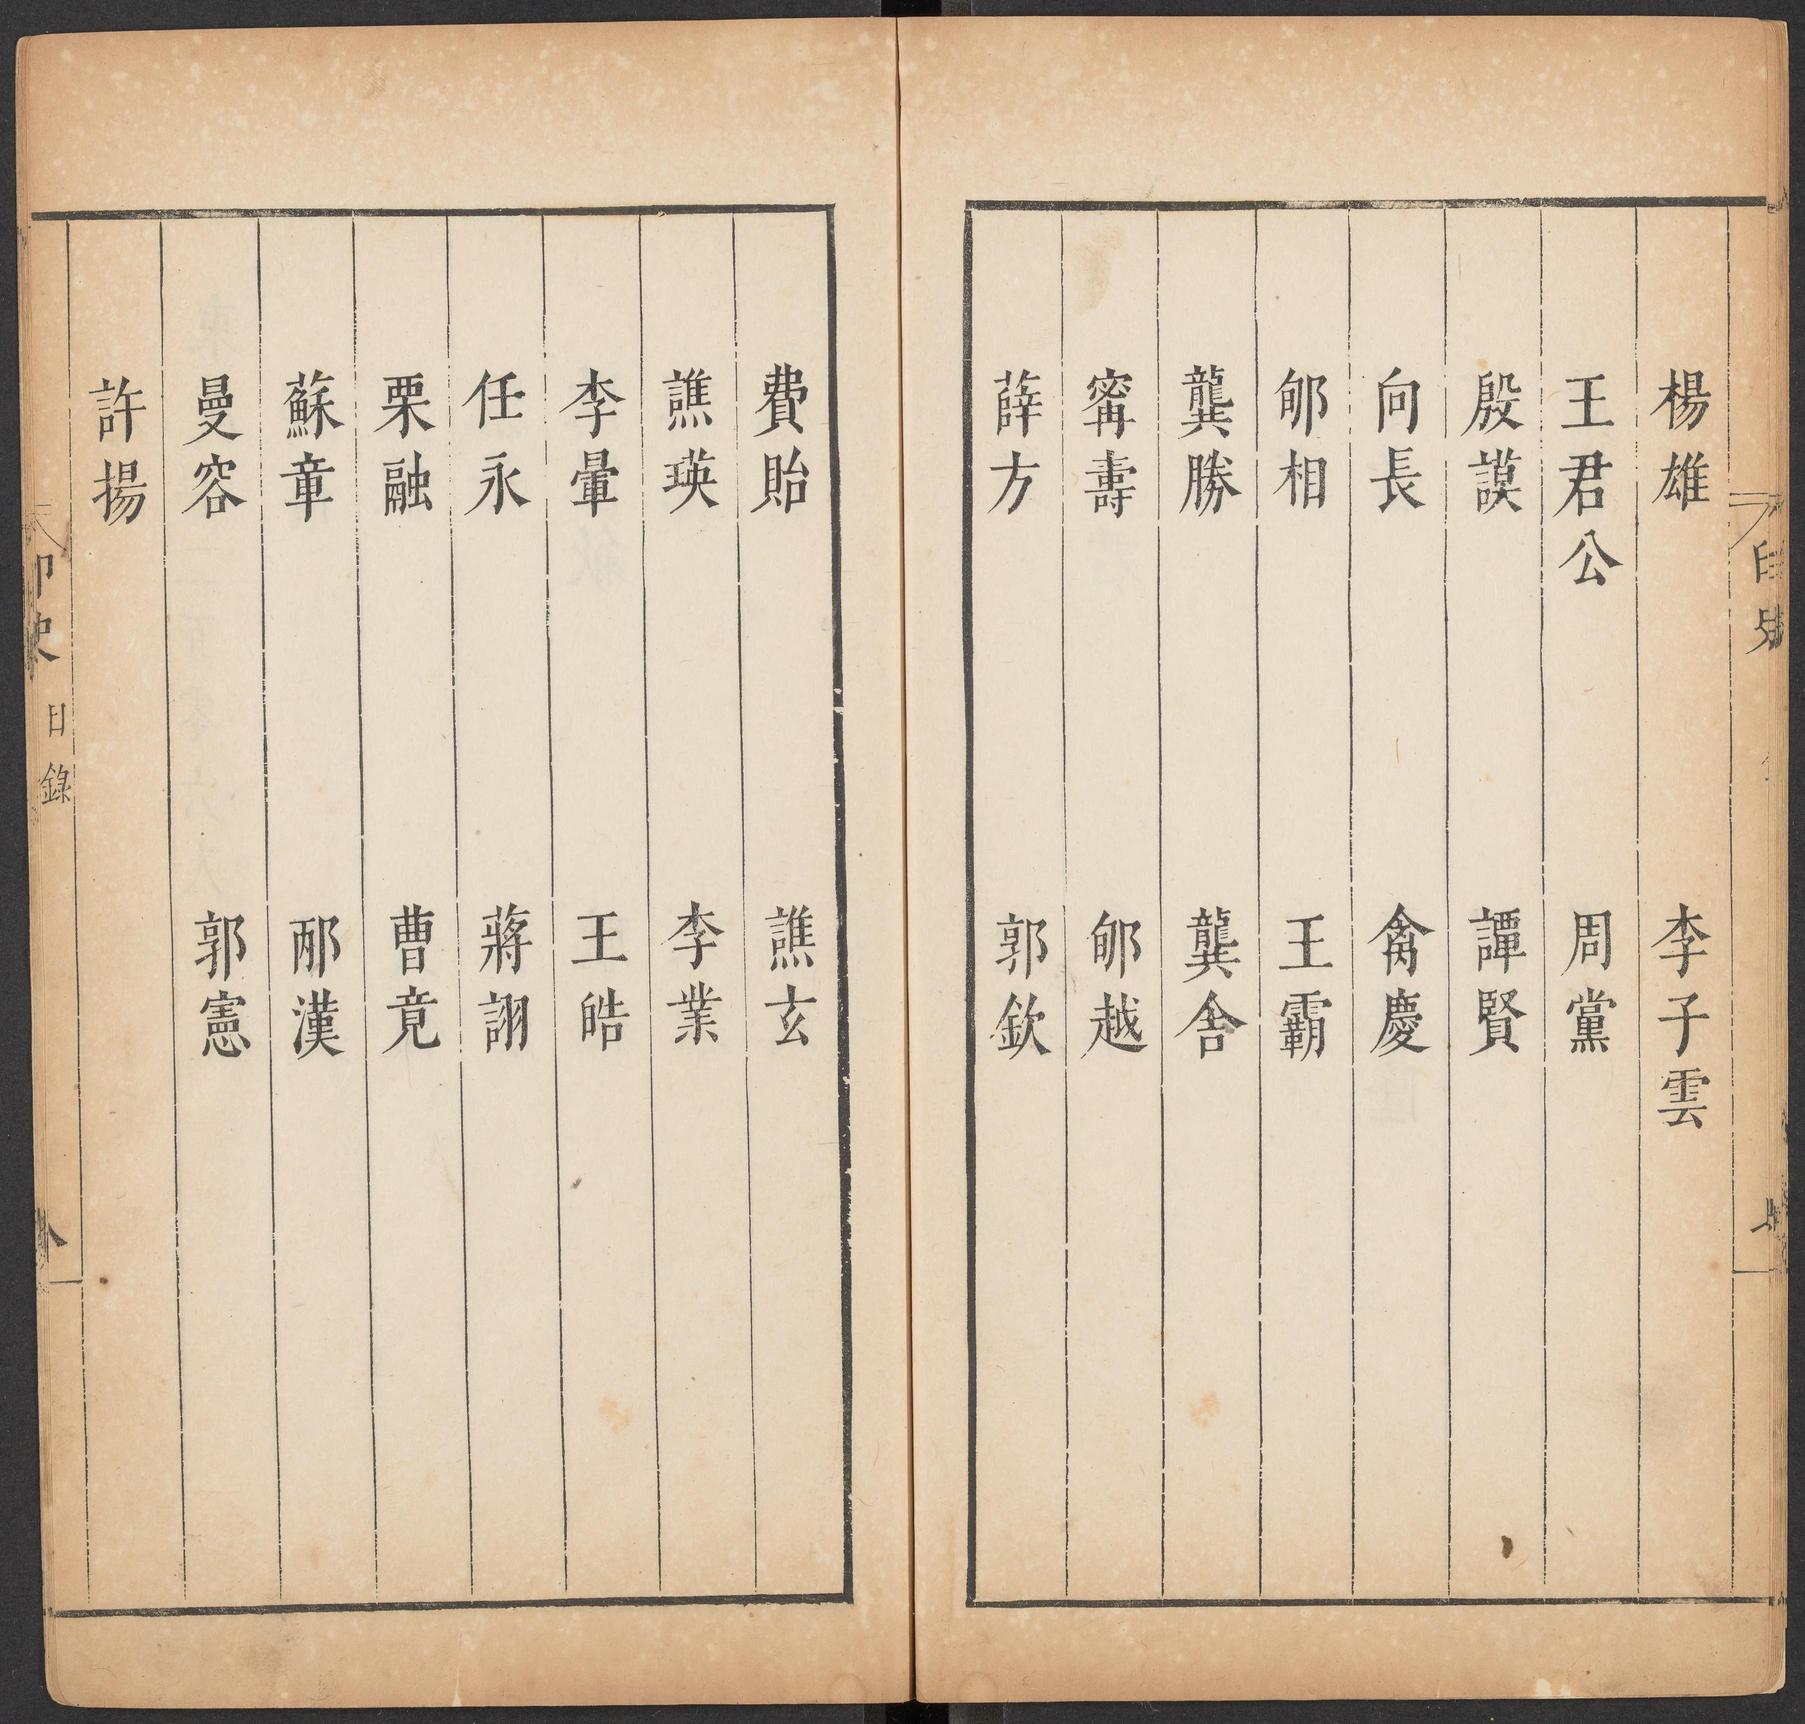 楊雄 李子雲
王君公 周黨
殷謨 譚賢
向長 禽慶
郇相 王霸
龔勝 龔舍
甯壽 郇越
薛方 郭欽
費貽 譙玄
譙瑛 李業
李暈 王皓
任永 蔣詡
栗融 曹竟
蘇章 邴漢
曼容 郭憲
許揚
印史 目錄 八